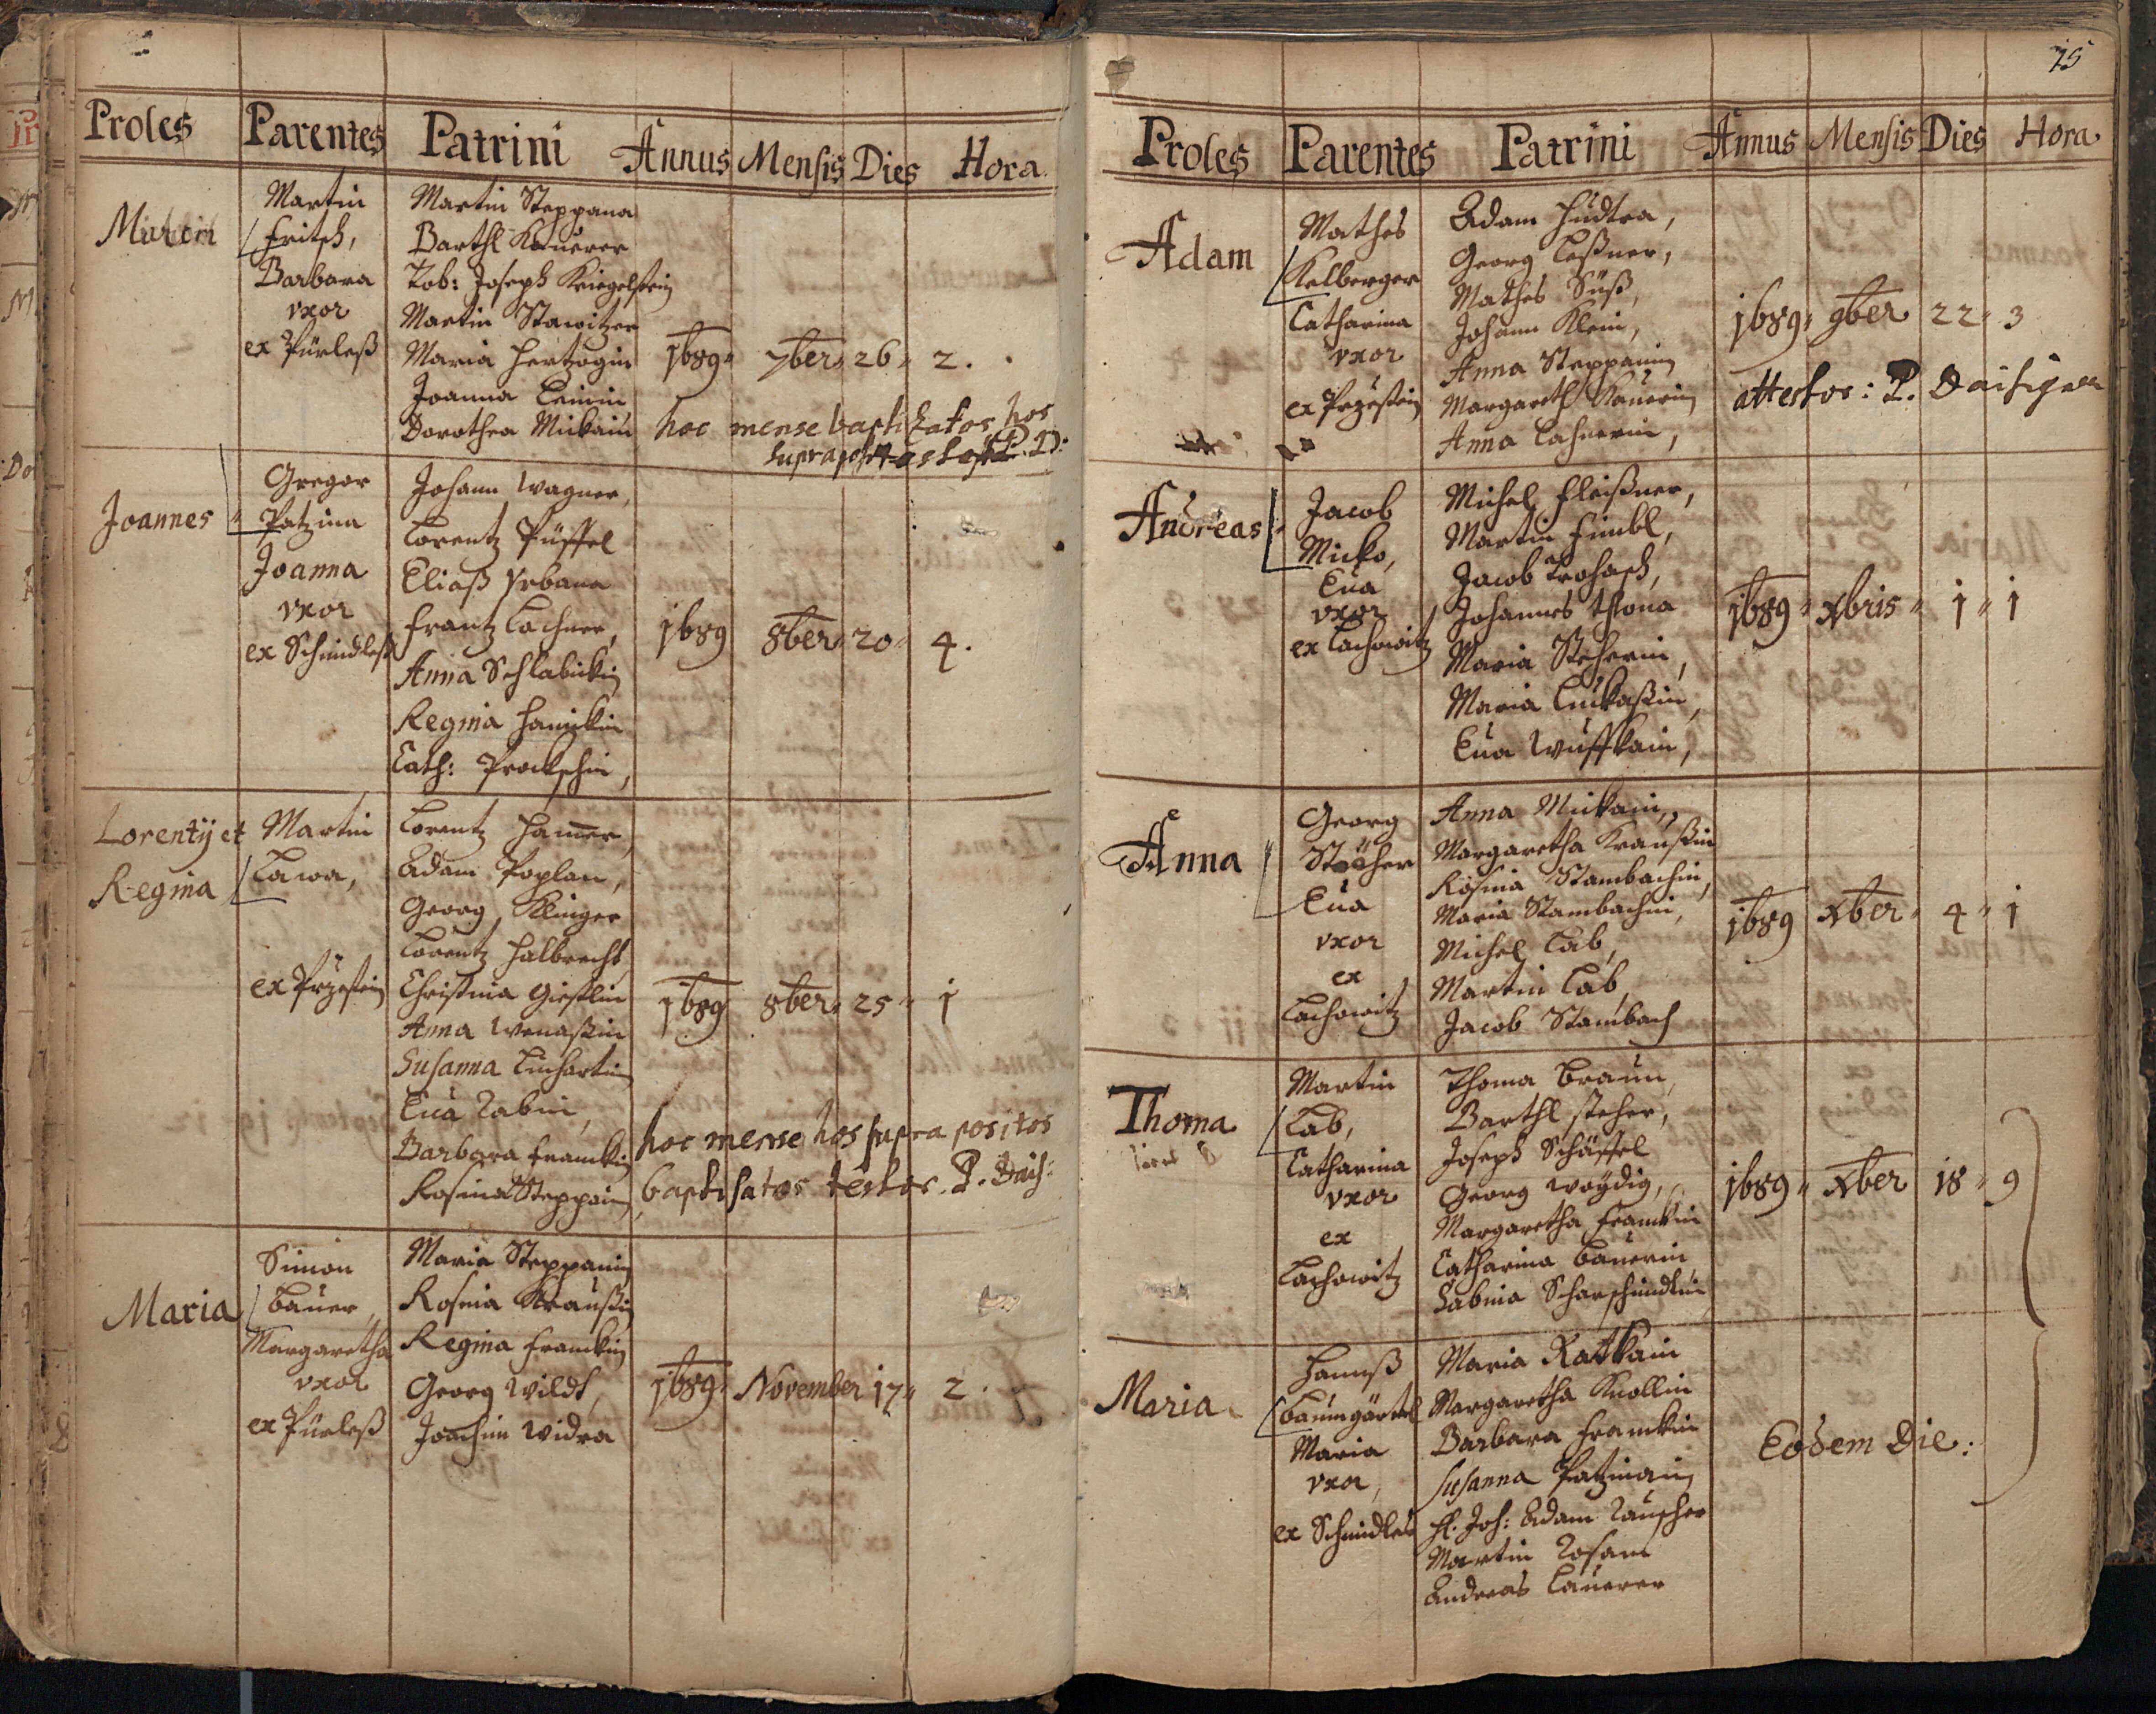 Proles Parentes Patrini Annus Mensis Dies Hora
Martin
Fritsch,
Barbara
vxor
ex Pürleß
Martin Steppana
Barthl Kauerer
Tob: Joseph Kriegelstein
Martin Stawitzer
Maria Hertzogin
Joanna
Dorothea Mickain
1689 7ber 26 2.
hoc mense baptizatos hos
Joannes
Gregor
Patzina
Joanna
vxor
ex Schindleß
Johann Wagner,
Lorentz Püffel
Eliaß Vrbana
Frantz Lachner,
Anna Schlabickin
Regina Hanickin
Cath: Prockschin,
1689 8ber 20 4.
Lorentij et
Regina
Martin
Lawa,
ex Przestein
Lorentz Hamer,
Adam Poplan,
Georg Klinger
Lorentz Halbrecht,
Christina Gieslin
Anna Wenaßin
Susanna Linhartin
Eua Labin,
Barbara Franckin
Rosina Steppain
1689 8ber 25 1
hoc mense hos supra positos
baptisatos testor P. Daif:
Maria
Simon
Bauer,
Margaretha
vxor
ex Pürleß
Maria Steppanin
Rosina Kraußin
Regina Franckin
Georg Wildt,
Joachim Widra
1689 November 17 2.
75
Proles Parentes Patrini Annus Mensis Dies Hora
Adam
Mathes
Kelberger
Catharina
vxor
ex Przestein
Adam Hudtra,
Georg Leßner,
Mathes Süß,
Johann Klein,
Anna Steppanin
Margareth Kauerin
Anna Lahnerin,
1689 9ber 22 3
attestor: P.
Andreas
Jacob
Micko,
Eua
vxor
ex Lachowitz
Michel Fleißner,
Martin Fimbl,
Jacob Trohasch,
Johannes
Maria Steherin,
Maria Luckaßin,
Eua Wuffkain,
1689 xbris 1 1
Anna
Georg
Stecher
Eua
vxor
ex
Lachowitz
Anna Mickain,
Margaretha Kraußin
Rosina Stambachin,
Maria Stambachin,
Michel Lab,
Martin Lab,
Jacob Stambach
1689 xber 4 1
Thoma
Martin
Lab,
Catharina
vxor
ex
Lachowitz
Thoma Braun,
Barthl Steher,
Joseph Schäffel
Georg Woydig,
Margaretha Franckin
Catharina Bauerin
Sabina Scharschindlin
1689 xber 18 9
Maria
Hannß
Baumgärtel
Maria
vxor,
ex Schindles
Maria Ratkain
Margaretha Knollin
Barbara Franckin
Susanna Patzinain
H. Joh: Adam Rauscher
Martin Rosam
Andreas Lauerer
Eodem Die: